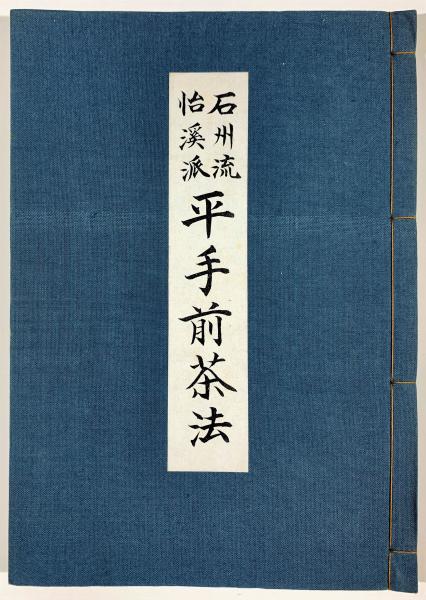 石州流
怡溪派
平手前茶法